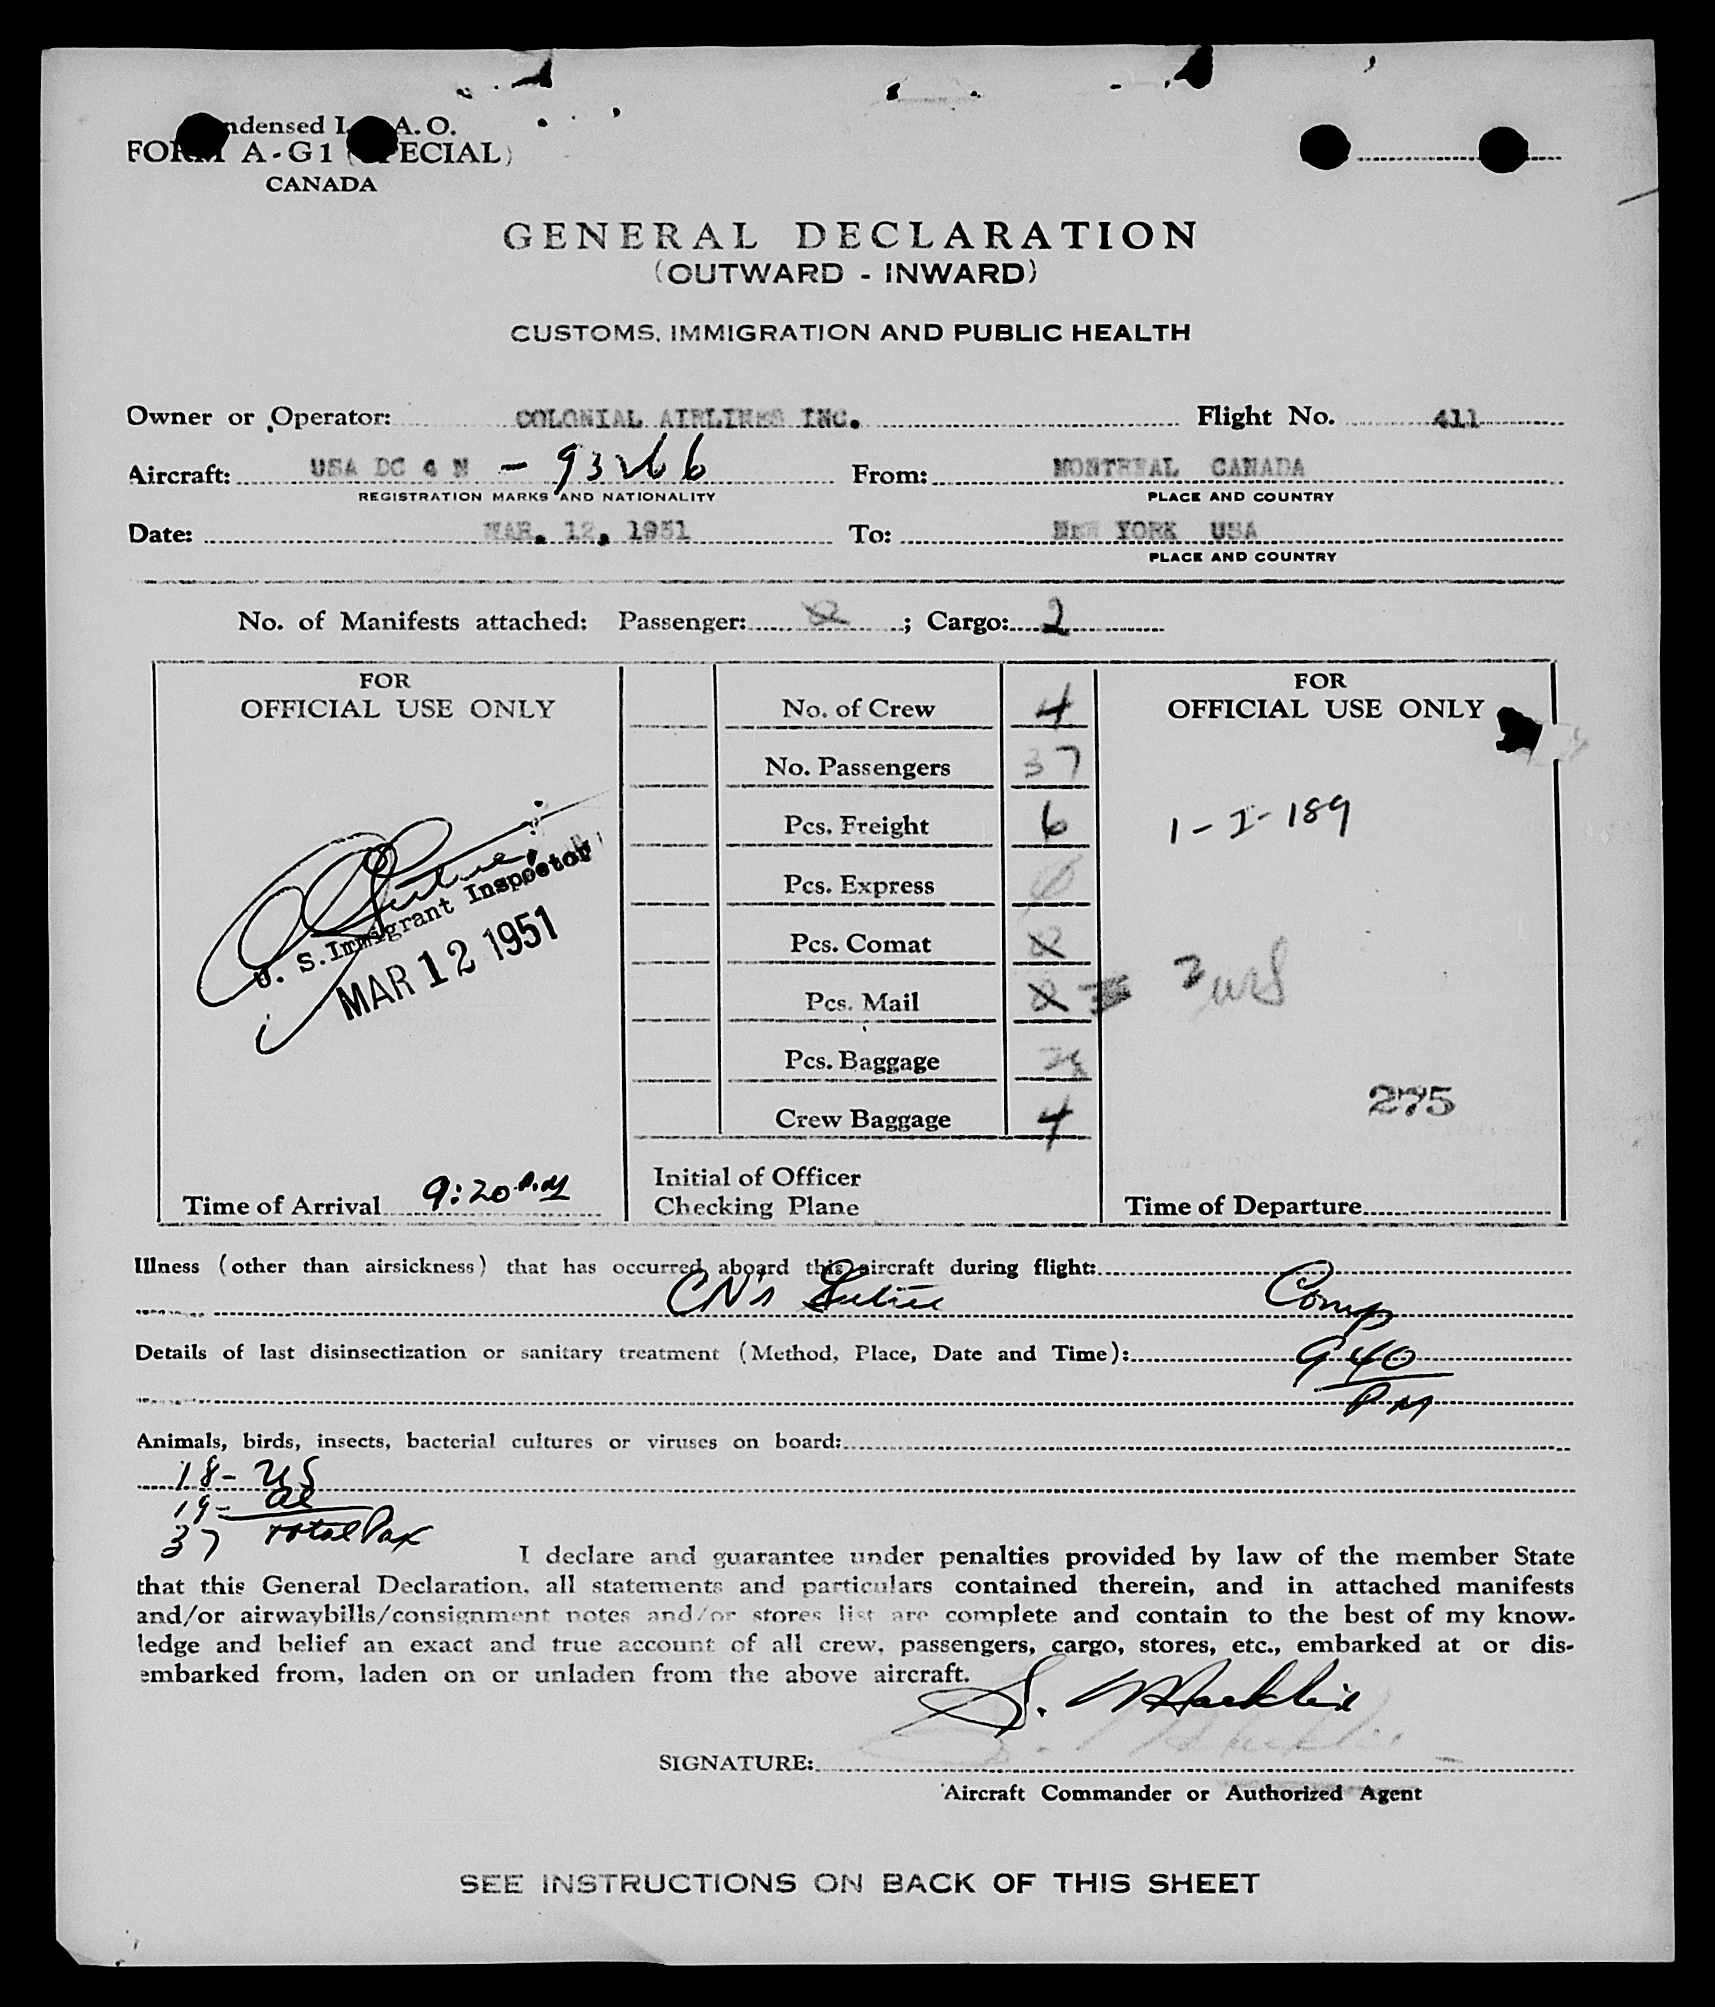 ndensed I. A. O.
FORM A-G1 (SPECIAL)
CANADA
GENERAL DECLARATION
(OUTWARD - INWARD)
CUSTOMS, IMMIGRATION AND PUBLIC HEALTH
Owner or Operator: COLONIAL AIRLINES INC. Flight No. 411
Aircraft: USA DC 4 N - 93266 From: MONTREAL CANADA
REGISTRATION MARKS AND NATIONALITY PLACE AND COUNTRY
Date: MAR. 12, 1951 To: NEW YORK USA
PLACE AND COUNTRY
No. of Manifests attached: Passenger: ; Cargo: 2
FOR
OFFICIAL USE ONLY
U. S. Immigrant Inspector
MAR 12 1951
Time of Arrival 9:20 P.M
No. of Crew 4
No. Passengers 37
Pcs. Freight 6
Pcs. Express
Pcs. Comat
Pcs. Mail
Pcs. Baggage
Crew Baggage 4
Initial of Officer
Checking Plane
FOR
OFFICIAL USE ONLY
1-I-189
275
Time of Departure
Illness (other than airsickness) that has occurred aboard this aircraft during flight:
CN's Comp
Details of last disinsectization or sanitary treatment (Method, Place, Date and Time): 9 40
PM
Animals, birds, insects, bacterial cultures or viruses on board:
18- US
19- al
37 total Pax
I declare and guarantee under penalties provided by law of the member State
that this General Declaration, all statements and particulars contained therein, and in attached manifests
and/or airwaybills/consignment notes and/or stores list are complete and contain to the best of my know-
ledge and belief an exact and true account of all crew, passengers, cargo, stores, etc., embarked at or dis-
embarked from, laden on or unladen from the above aircraft.
SIGNATURE:
Aircraft Commander or Authorized Agent
SEE INSTRUCTIONS ON BACK OF THIS SHEET